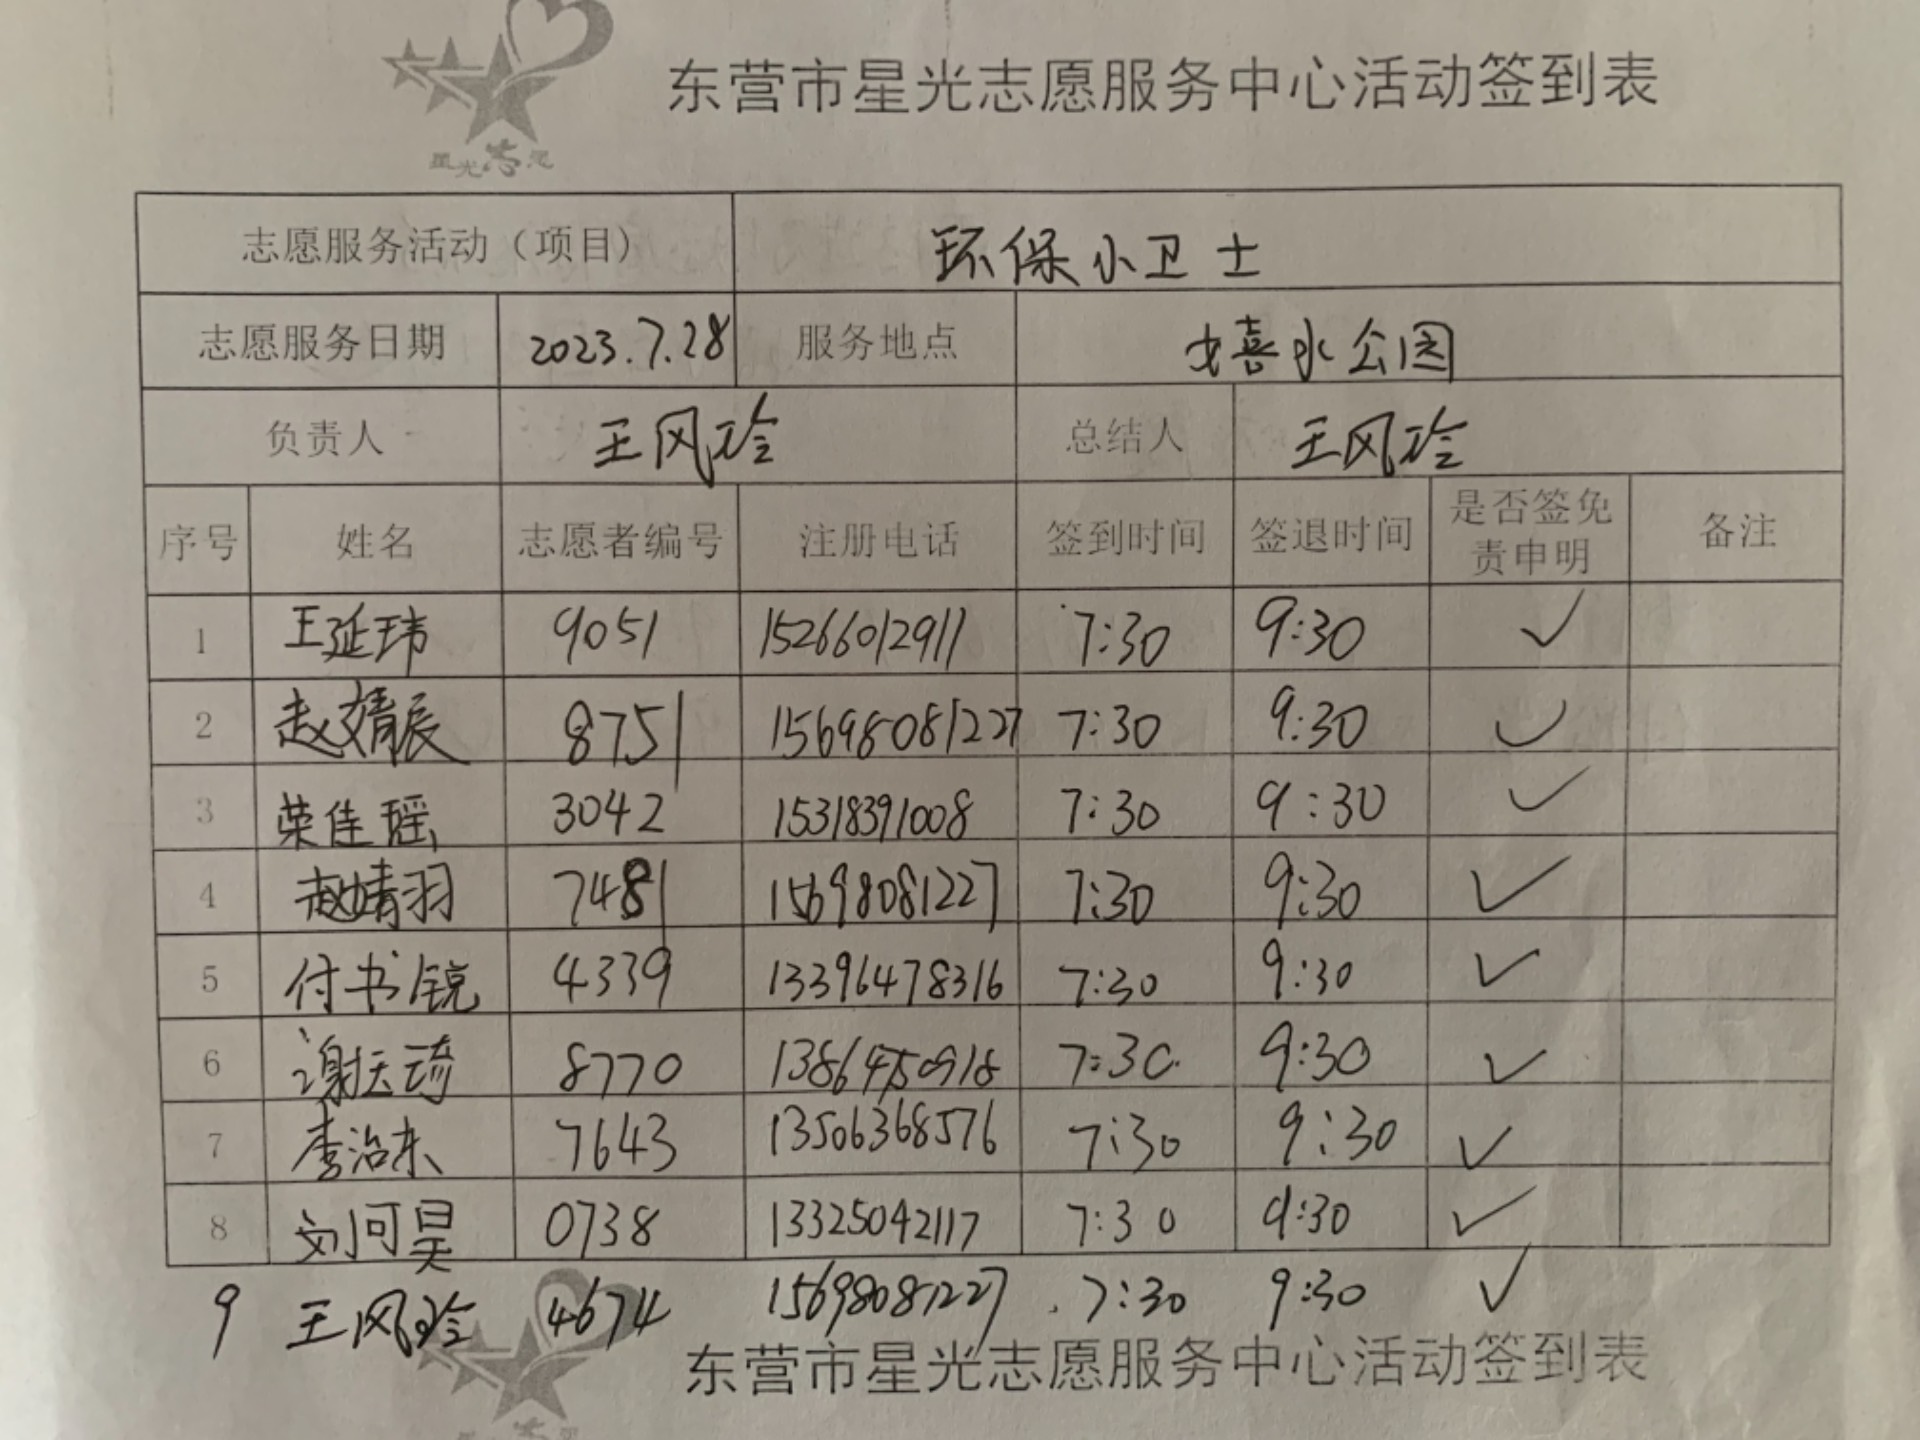 星光志愿
东营市星光志愿服务中心活动签到表
志愿服务活动（项目） 环保小卫士
志愿服务日期 2023.7.28 服务地点 嬉水公园
负责人 王风玲 总结人 王风玲
序号 姓名 志愿者编号 注册电话 签到时间 签退时间 是否签免责申明 备注
1 王延玮 9051 15266012911 7:30 9:30 ✓
2 赵婧辰 8751 15698081227 7:30 9:30 ✓
3 荣佳瑶 3042 15318391008 7:30 9:30 ✓
4 赵婧羽 7481 15698081227 7:30 9:30 ✓
5 付书锐 4339 13396478316 7:30 9:30 ✓
6 谢天琦 8770 7:30 9:30 ✓
7 李治东 7643 13506368576 7:30 9:30 ✓
8 刘可昊 0738 13325042117 7:30 9:30 ✓
9 王风玲 4674 15698081227 7:30 9:30 ✓
东营市星光志愿服务中心活动签到表